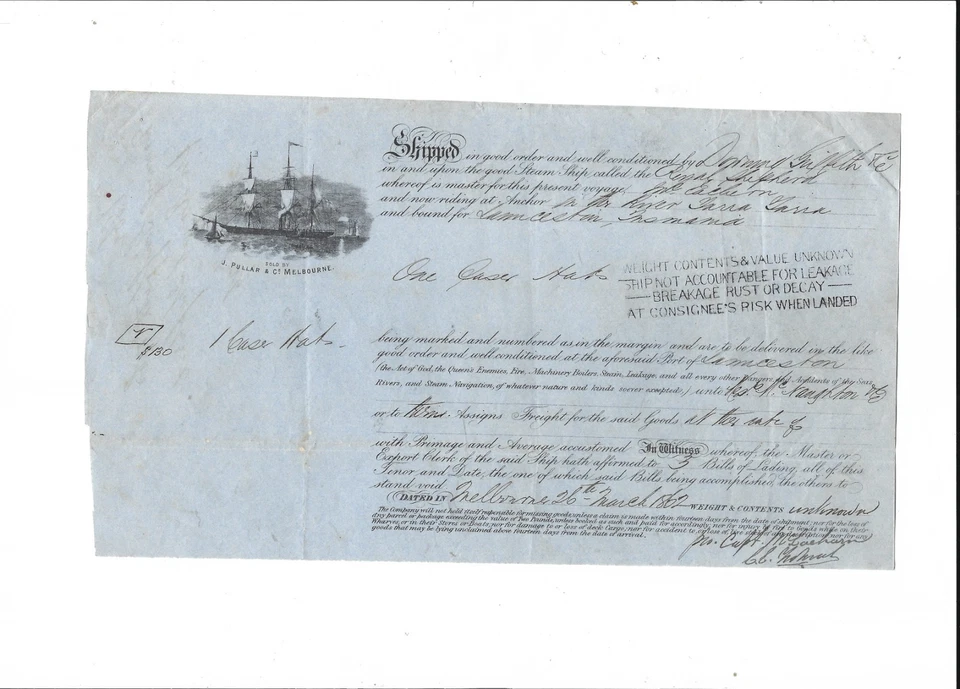 Shipped in good order and well conditioned by
in and upon the good Steam Ship called the Royal Shepherd
whereof is master for this present voyage,
and now riding at Anchor in the River Yarra Yarra
and bound for Launceston, Tasmania
SOLD BY
J. PULLAR & Co. MELBOURNE.
One Case Hats
WEIGHT CONTENTS & VALUE UNKNOWN
SHIP NOT ACCOUNTABLE FOR LEAKAGE
BREAKAGE RUST OR DECAY
AT CONSIGNEE'S RISK WHEN LANDED
1 Case Hats
being marked and numbered as in the margin and are to be delivered in the like
good order and well conditioned at the aforesaid Port of Launceston
(the Act of God, the Queen's Enemies, Fire, Machinery Boilers, Steam, Leakage, and all every other Dangers and Accidents of the Seas
Rivers, and Steam Navigation, of whatever nature and kinds soever excepted,) unto McNaughton & Co
or to them Assigns Freight for the said Goods at the rate of
with Primage and Average accustomed In Witness whereof, the Master or
Export Clerk of the said Ship hath affirmed to 3 Bills of Lading, all of this
Tenor and Date, the one of which said Bills being accomplished, the others to
stand void.
DATED IN Melbourne 26th March 1862 WEIGHT & CONTENTS unknown
The Company will not hold itself responsible for missing goods, unless a claim is made within fourteen days from the date of shipment, nor for the loss of
any parcel or package exceeding the value of Two Pounds, unless booked as such and paid for accordingly, nor for injury to
Wharves, or in their Stores or Boats, nor for damage to or loss of deck cargo, nor for accident to
goods that may be lying unclaimed above fourteen days from the date of arrival.
pro. Capt.